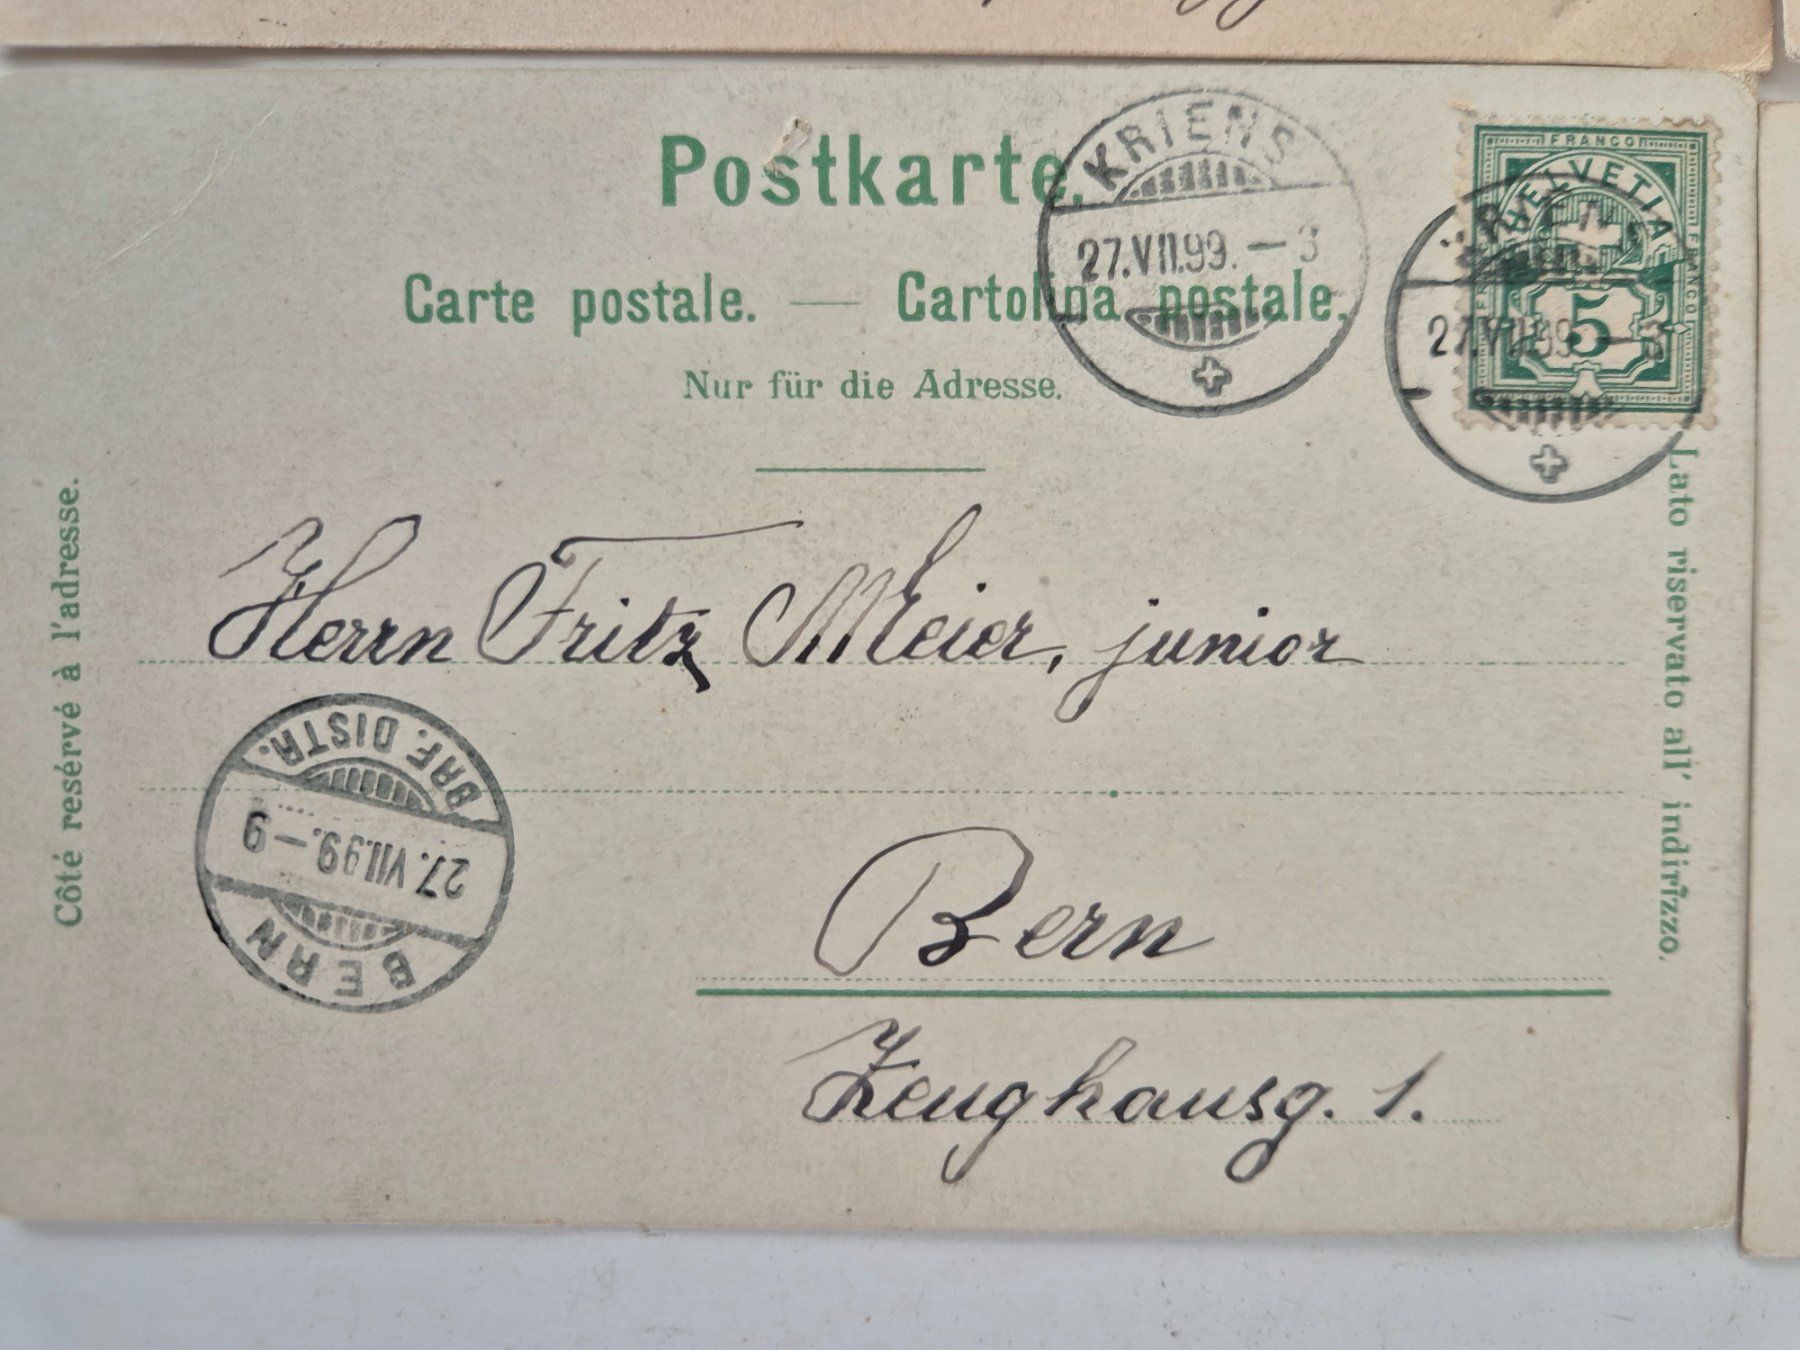 Postkarte.
Carte postale. — Cartolina postale.
Nur für die Adresse.
KRIENS
27.VII.99.—3
FRANCO
HELVETIA
FRANCO
5
KRIENS
27.VII.99.—3
Côté resérvé à l'adresse.
Lato riservato all' indirizzo.
Herrn Fritz Meier, junior
BRF. DISTR.
27.VII.99.—9
BERN
Bern
Zeughausg. 1.